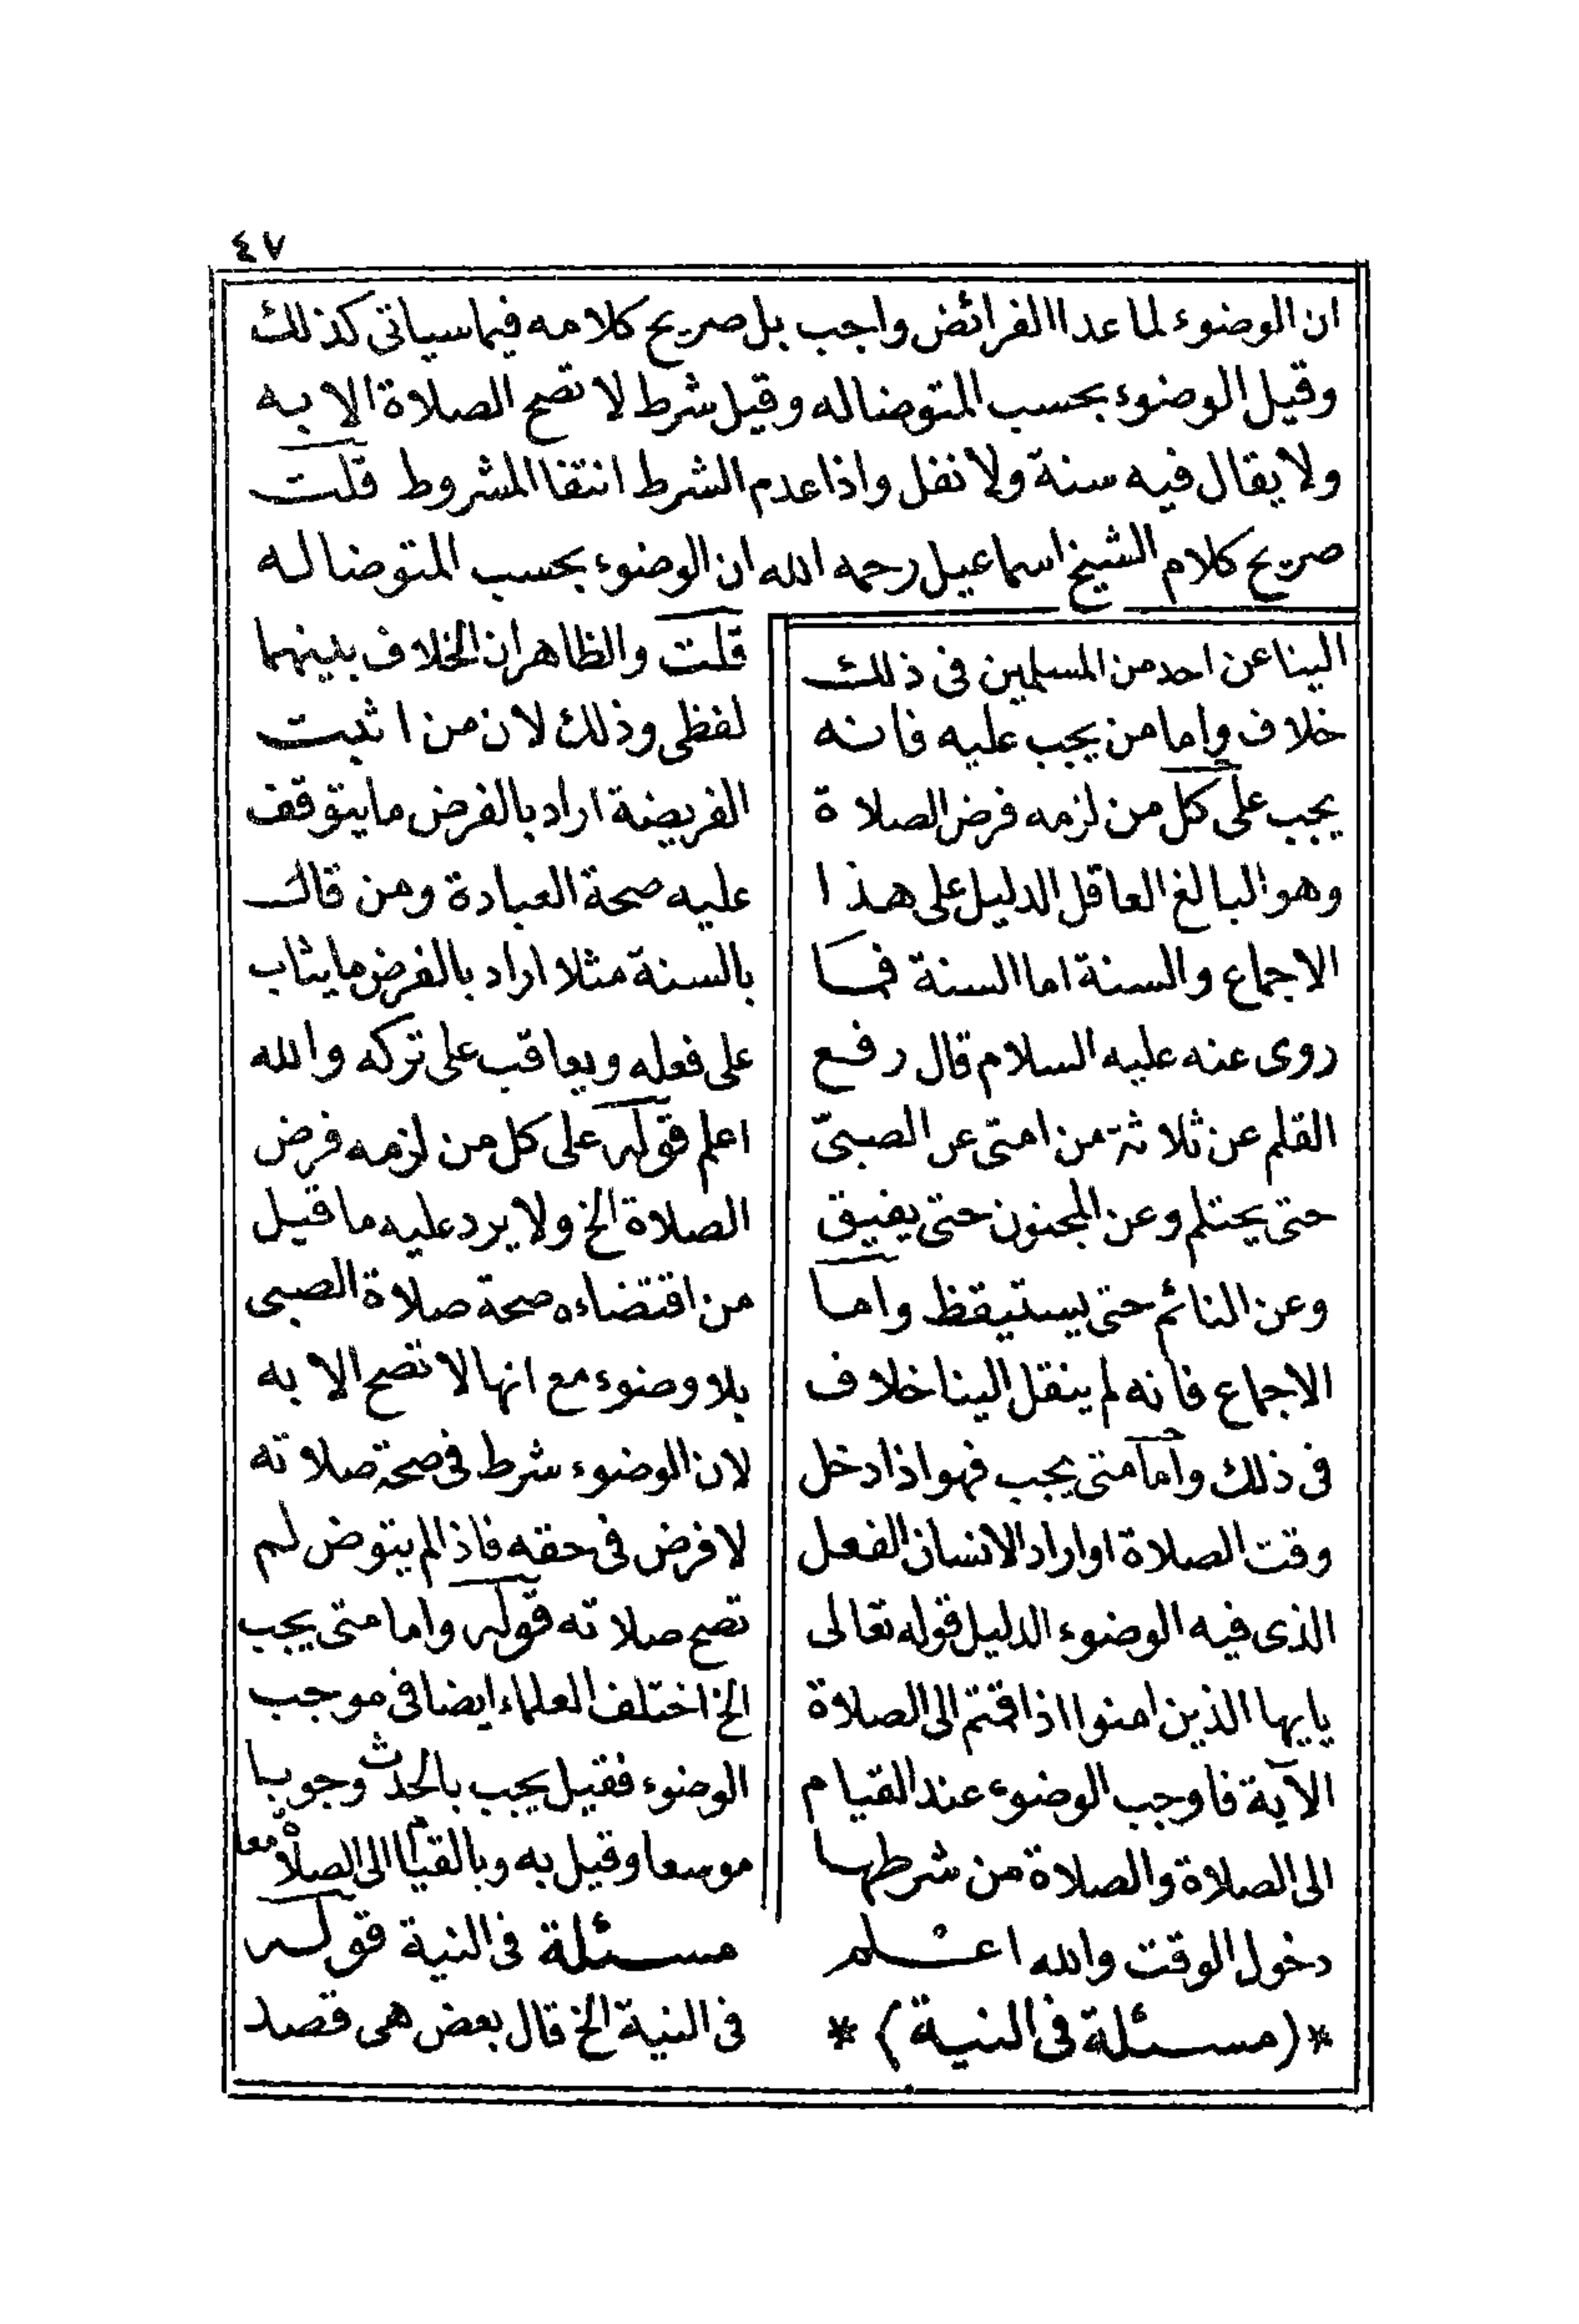 ٤٧
ان الوضوء لما عدا الفرائض واجب بل صريح كلامه فيما سياتى كذلك
وقيل الوضوء بحسب المتوضا له وقيل شرط لا تصح الصلاة الا به
ولا يقال فيه سنة ولا نفل واذا عدم الشرط انتفا المشروط قلت
صريح كلام الشيخ اسماعيل رحمه الله ان الوضوء بحسب المتوضا له
الينا عن احد من المسلمين فى ذلك
خلاف واما من يجب عليه فانه
يجب على كل من لزمه فرض الصلاة
وهو البالغ العاقل الدليل على هذا
الاجماع والسنة اما السنة فما
روى عنه عليه السلام قال رفع
القلم عن ثلاثة من امتى عن الصبىّ
حتى يحتلم وعن المجنون حتى يفيق
وعن النائم حتى يستيقظ واما
الاجماع فانه لم ينقل الينا خلاف
فى ذلك واما متى يجب فهو اذا دخل
وقت الصلاة او اراد الانسان الفعل
الذى فيه الوضوء الدليل قوله تعالى
يايها الذين امنوا اذا قمتم الى الصلاة
الآية فاوجب الوضوء عند القيام
الى الصلاة والصلاة من شرطها
دخول الوقت والله اعلم
*(مسئلة فى النية)*
قلت والظاهر ان الخلاف بينهما
لفظى وذلك لان من اثبت
الفريضة اراد بالفرض ما يتوقف
عليه صحة العبادة ومن قال
بالسنة مثلا اراد بالفرض ما يثاب
على فعله ويعاقب على تركه والله
اعلم قوله على كل من لزمه فرض
الصلاة الخ ولا يرد عليه ما قيل
من اقتضاءه صحة صلاة الصبى
بلا وضوء مع انها لا تصح الا به
لان الوضوء شرط فى صحة صلاته
لا فرض فى حقه فاذا لم يتوض لم
تصح صلاته قوله واما متى يجب
الخ اختلف العلماء ايضا فى موجب
الوضوء فقيل يجب بالحدث وجوبا
موسعا وقيل به وبالقيام الى الصلاة معا
مسئلة فى النية قوله
فى النية الخ قال بعض هى قصد